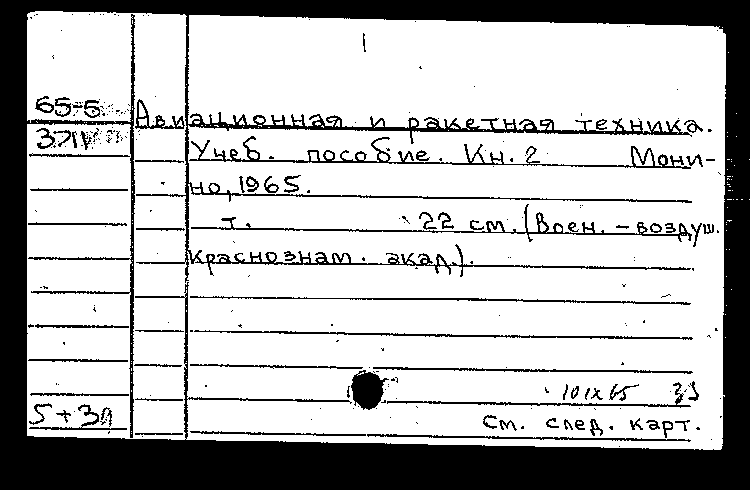 65-5
Авиационная и ракетная техника.
Учеб. пособие. Кн. 2 Мони-
но, 1965.
т. 22 см. (Воен. - воздуш.
краснознам. акад.).
10 IX 65
5+3л
См. след. карт.